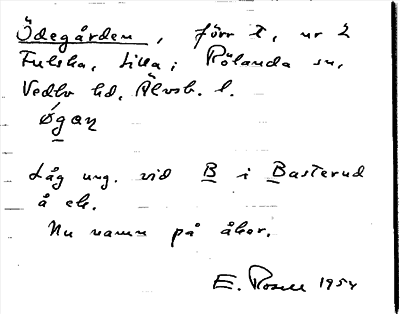 Ödegården, förr t, nr 2
Fulska, Lilla; Rölanda sn,
Vedbo hd, Älvsb. l.
Øgaɳ
Låg ung. vid B i Basterud
å ek.
Nu namn på åker.
E. Rosell 1954